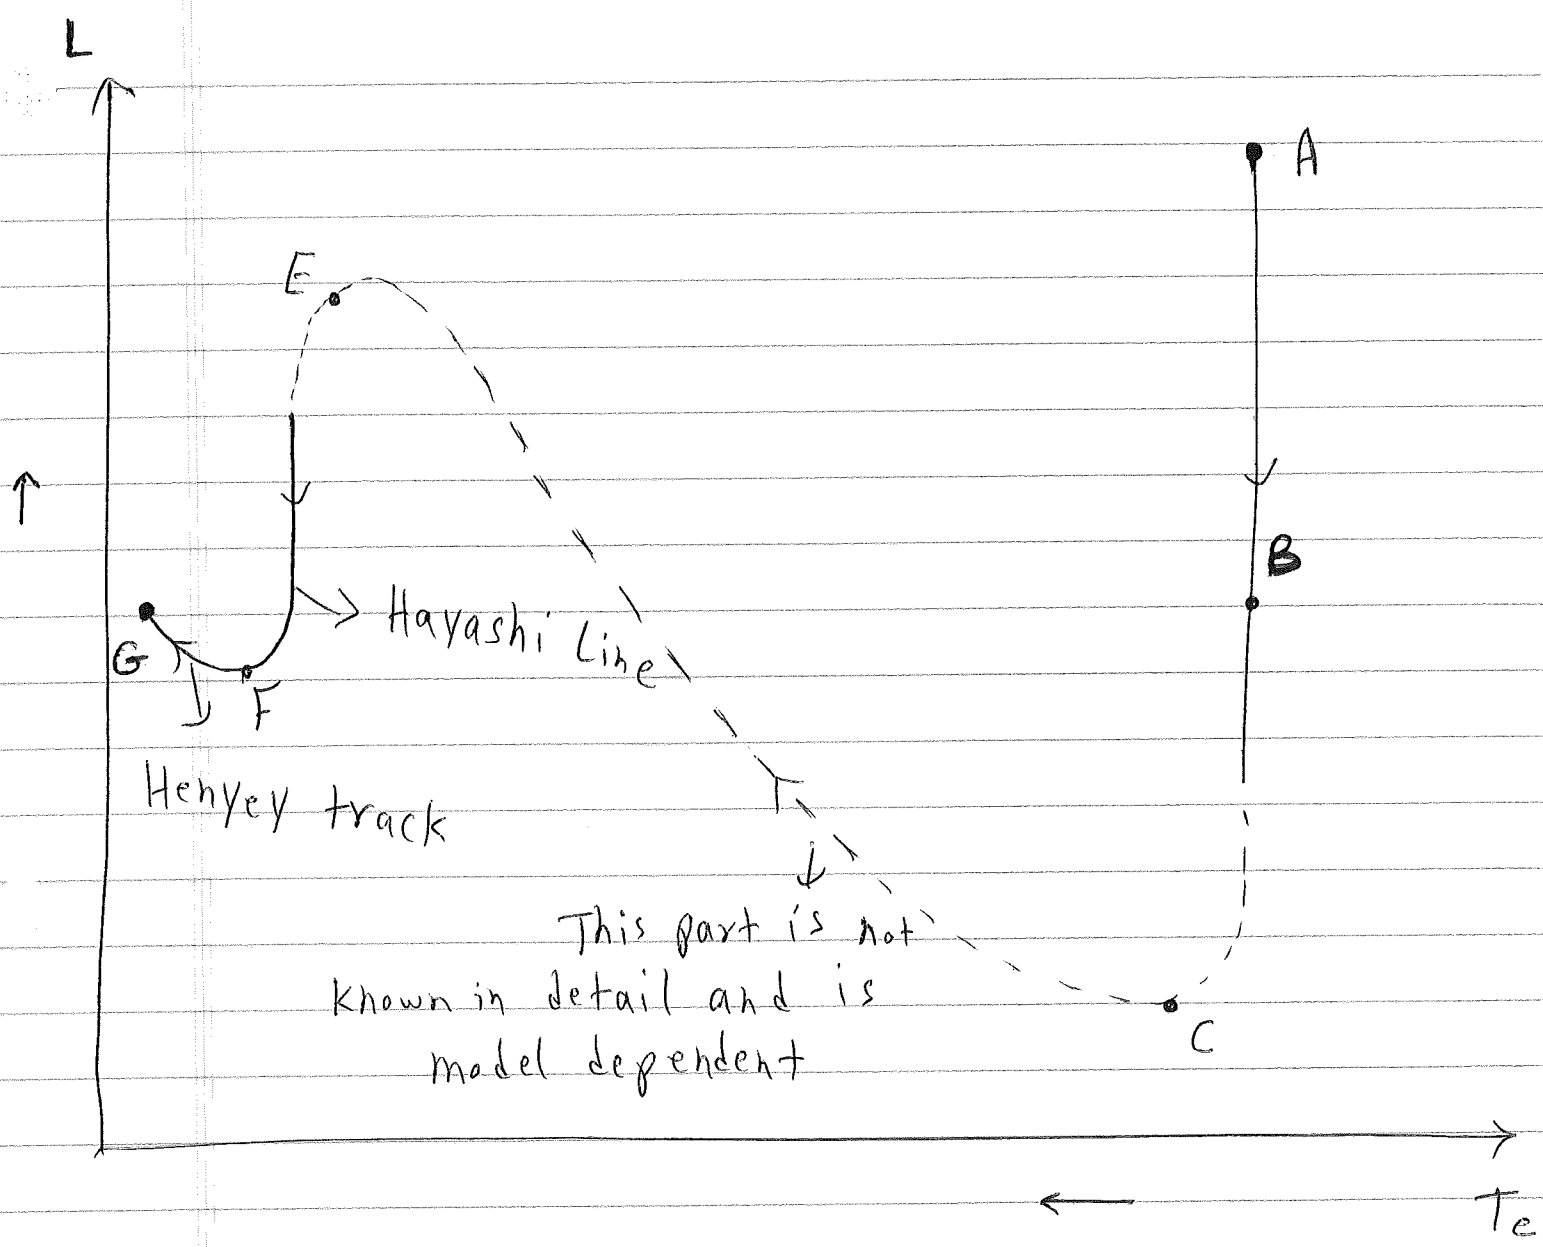 L
A
E
B
Hayashi Line
G
F
Henyey track
This part is not
known in detail and is
model dependent
C
Te